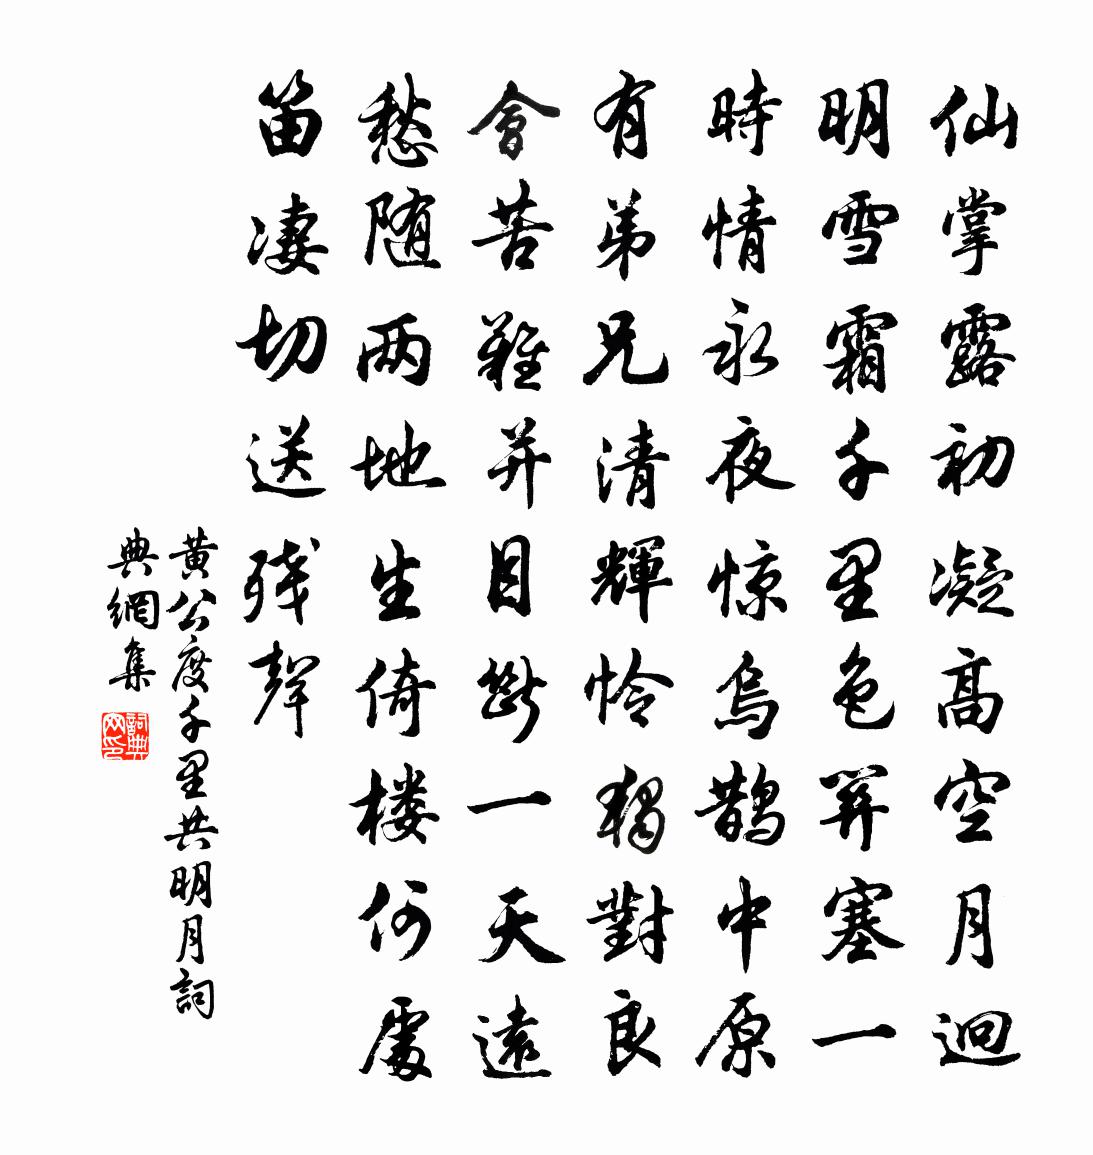 仙掌露初凝高空月迥
明雪霜千里色關塞一
時情永夜惊烏鹊中原
有弟兄清輝怜獨對良
會苦難并目斷一天遠
愁随两地生倚楼何處
笛凄切送残聲
黄公度千里共明月詞
典網集
詞典
网印